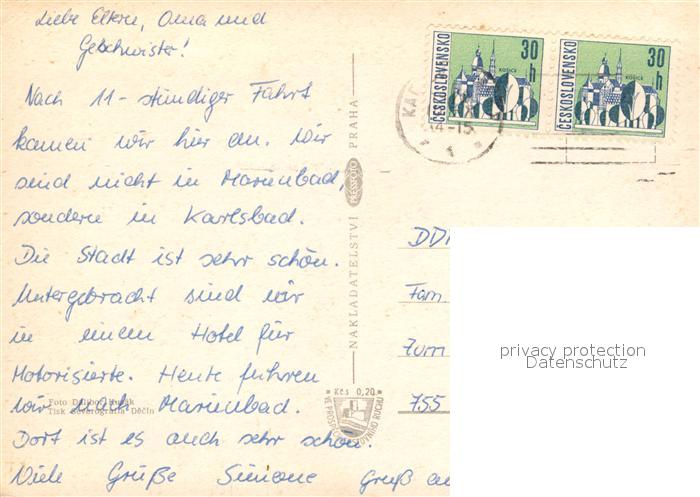 Liebe Eltern, Oma und
Geschwister!
Nach 11-stündiger Fahrt
kamen wir hier an. Wir
sind nicht in Marienbad,
sondern in Karlsbad.
Die Stadt ist sehr schön.
Untergebracht sind wir
in einem Hotel für
Motorisierte. Heute fuhren
wir nach Marienbad.
Dort ist es auch sehr schön.
Viele Grüße Simone Gruß
Foto
Tisk Severografia Děčín
NAKLADATELSTVÍ PRESSFOTO PRAHA
Kčs 0,20
VE PROSPĚCH
ČESKOSLOVENSKO
30 h
KOŠICE
ČESKOSLOVENSKO
30 h
KOŠICE
DDR
Fam
Zum
755
privacy protection
Datenschutz